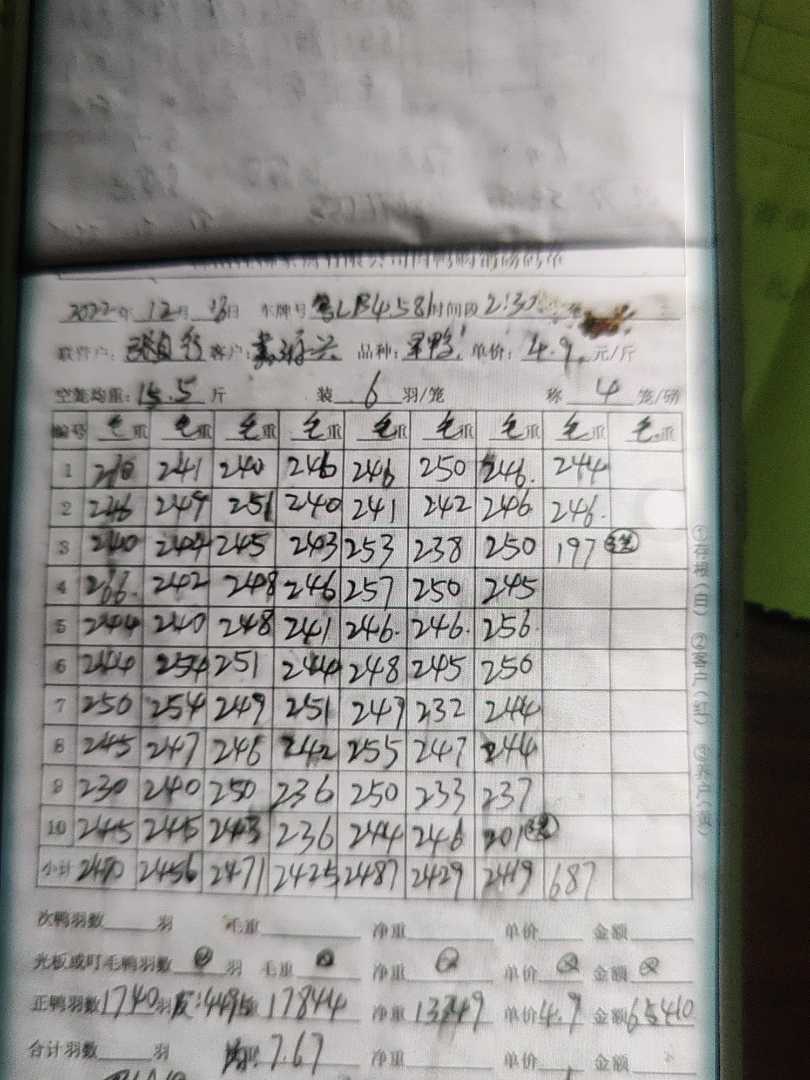 2022年 12月 日 车牌号 粤LB4581 时间段 2:30
联营户: 客户: 兴 品种: 鸭 单价: 4.9 元/斤
空笼均重: 15.5 斤 装 6 羽/笼 称 4 笼/磅
编号 毛重 毛重 毛重 毛重 毛重 毛重 毛重 毛重 毛重
1 260 241 240 246 246 250 246. 244
2 246 249 251 240 241 242 246 246.
3 240 244 245 243 253 238 250 197
4 266. 242 248 246 257 250 245
5 244 240 248 241 246. 246. 256.
6 244 254 251 244 248 245 250
7 250 254 249 251 247 232 244
8 245 247 246 242 255 247 244
9 230 240 250 236 250 233 237
10 245 245 243 236 244 246 201
小计 2470 2456 2471 2425 2487 2429 2419 687
次鸭羽数 羽 毛重 净重 单价 金额
光板或盯毛鸭羽数 羽 毛重 净重 单价 金额
正鸭羽数 1740 羽 4495 17844 净重 13349 单价 4.9 金额 65410
合计羽数 羽 7.67 净重 单价 金额
①存根(白) ②客户(红)